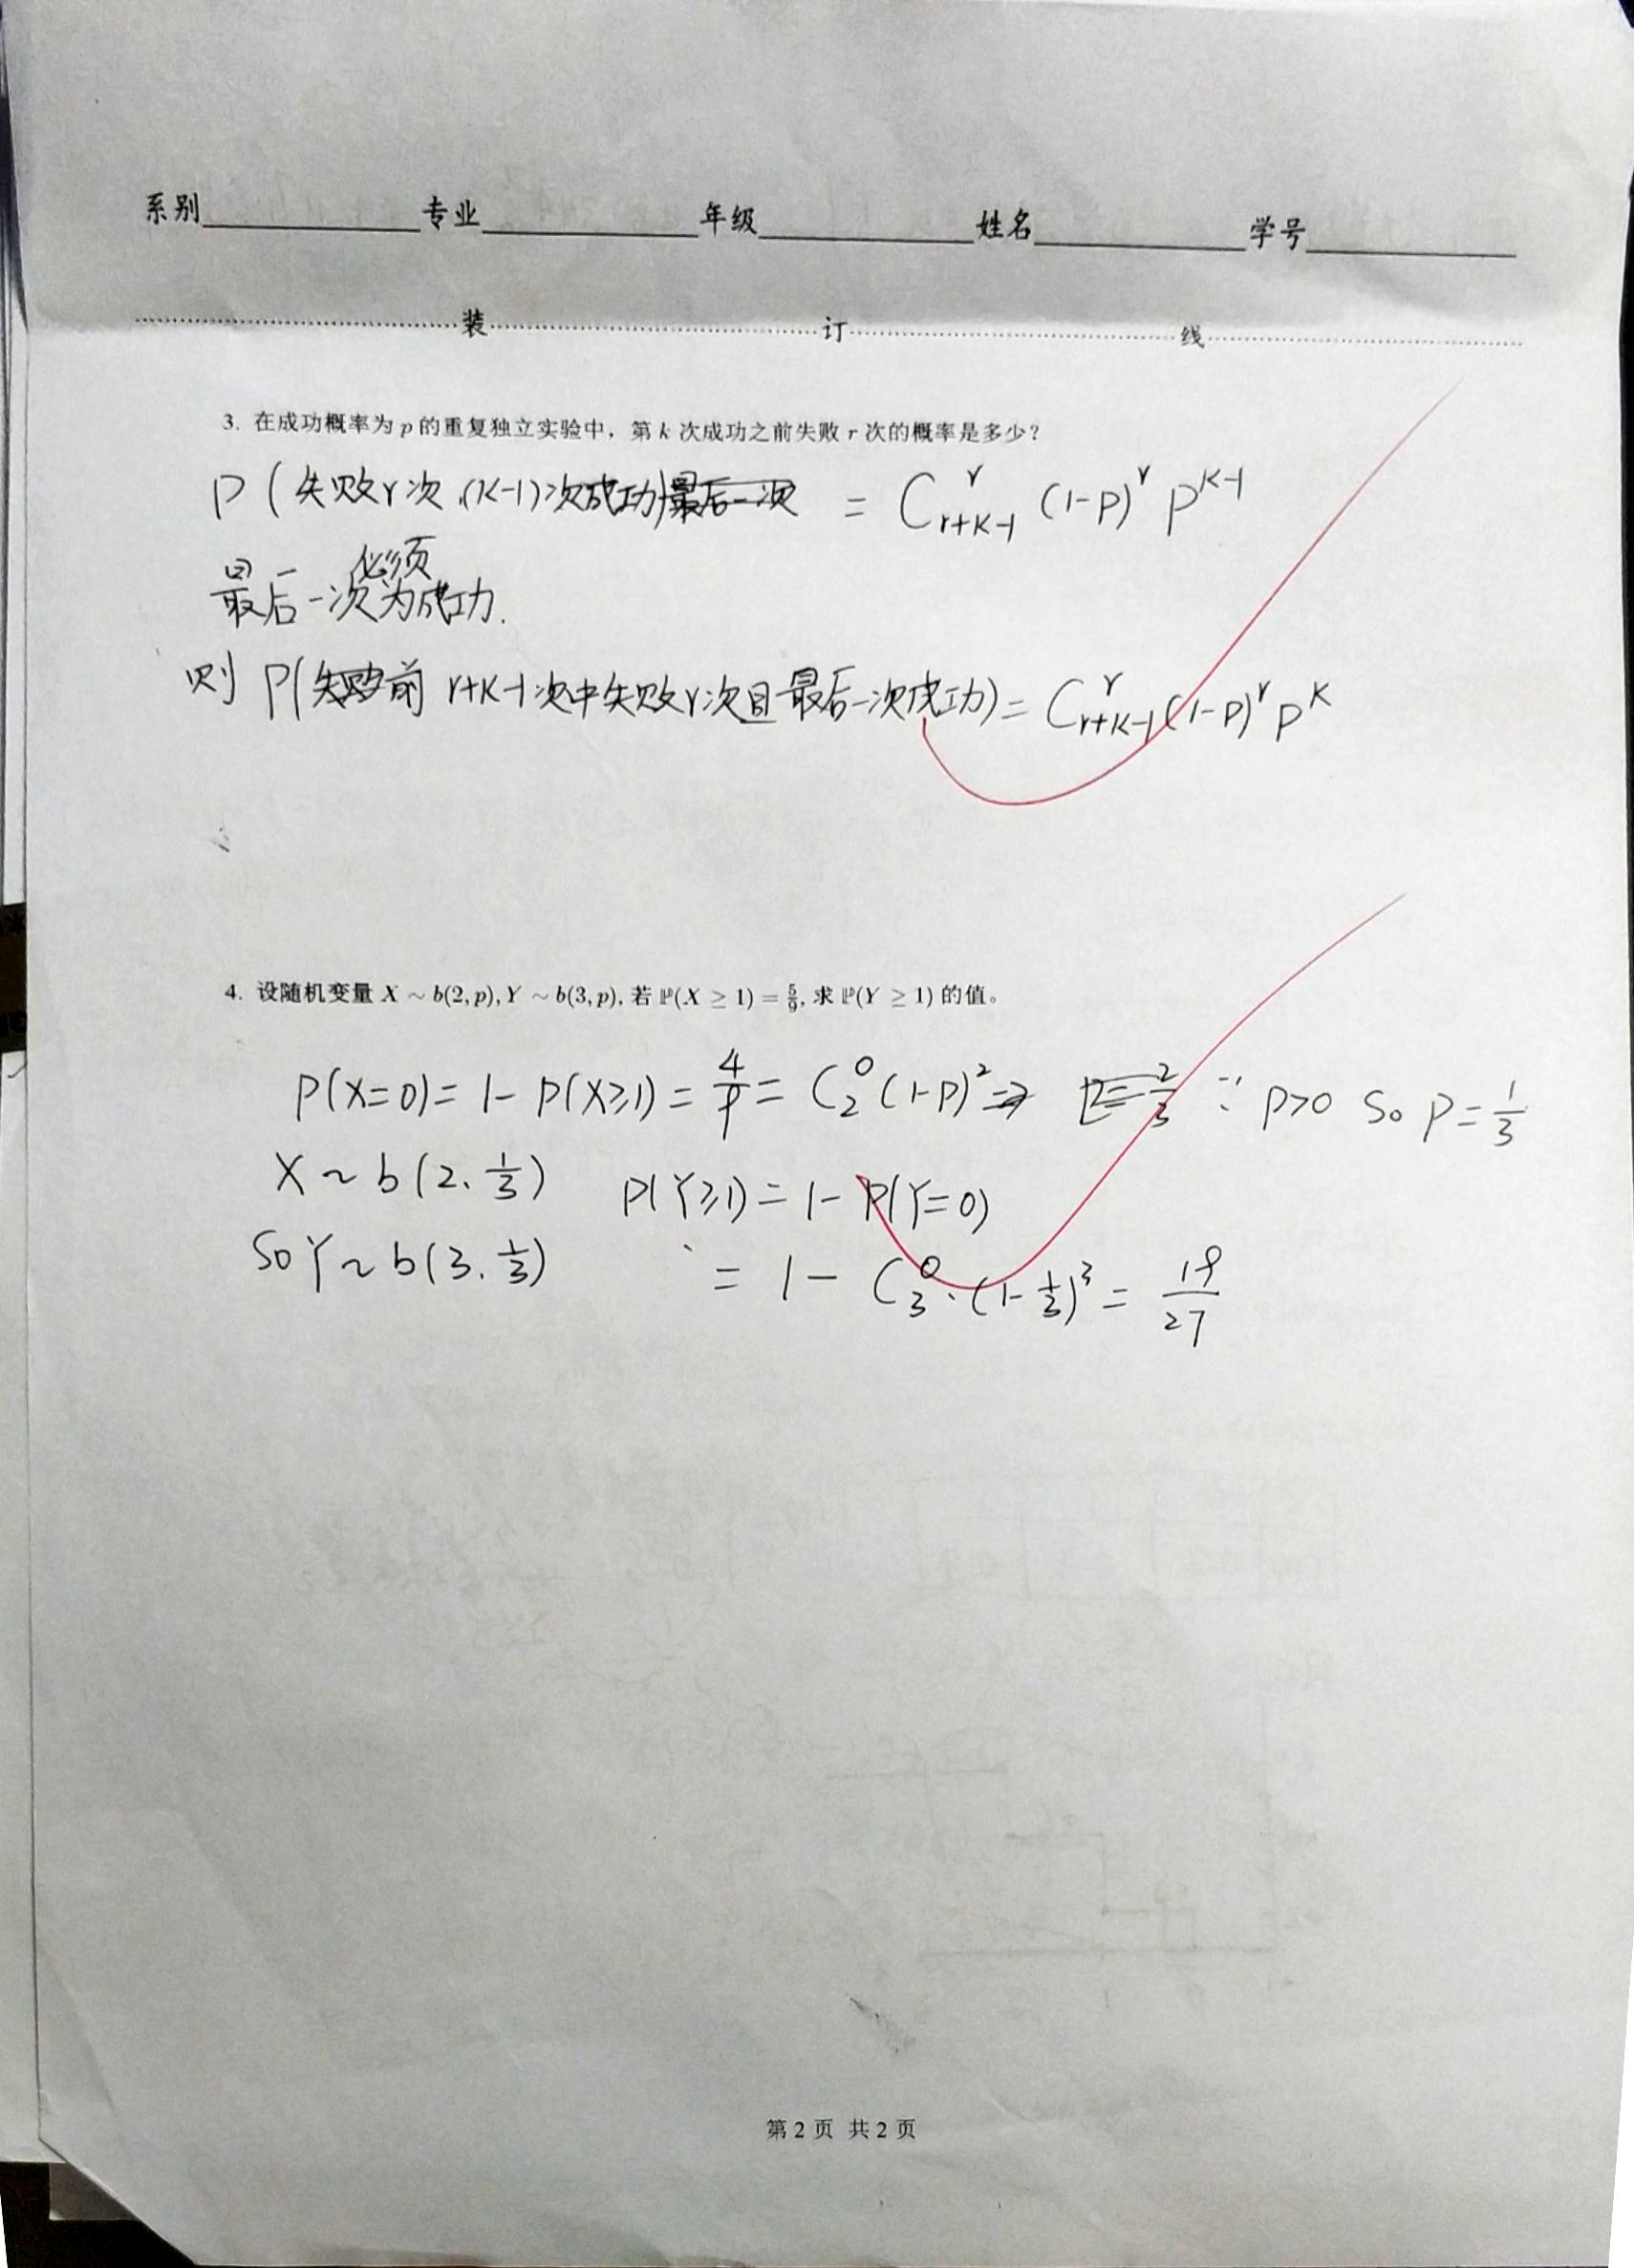 系别 专业 年级 姓名 学号
装 订 线
3. 在成功概率为 p 的重复独立实验中，第 k 次成功之前失败 r 次的概率是多少？
P(失败r次,(k-1)次成功)最后一次 = C_{r+k-1}^{r} (1-p)^r p^{k-1}
最后一次必须为成功.
则 P(失败前 r+k-1次中失败r次且最后一次成功) = C_{r+k-1}^{r} (1-p)^r p^k
4. 设随机变量 X ~ b(2,p), Y ~ b(3,p), 若 ℙ(X ≥ 1) = 5/9, 求 ℙ(Y ≥ 1) 的值。
P(X=0) = 1 - P(X≥1) = 4/9 = C_2^0 (1-p)^2 => p=2/3 ∵ p>0 so p = 1/3
X ~ b(2, 1/3) P(Y≥1) = 1 - P(Y=0)
So Y ~ b(3, 1/3) = 1 - C_3^0 · (1-1/3)^3 = 19/27
第 2 页 共 2 页